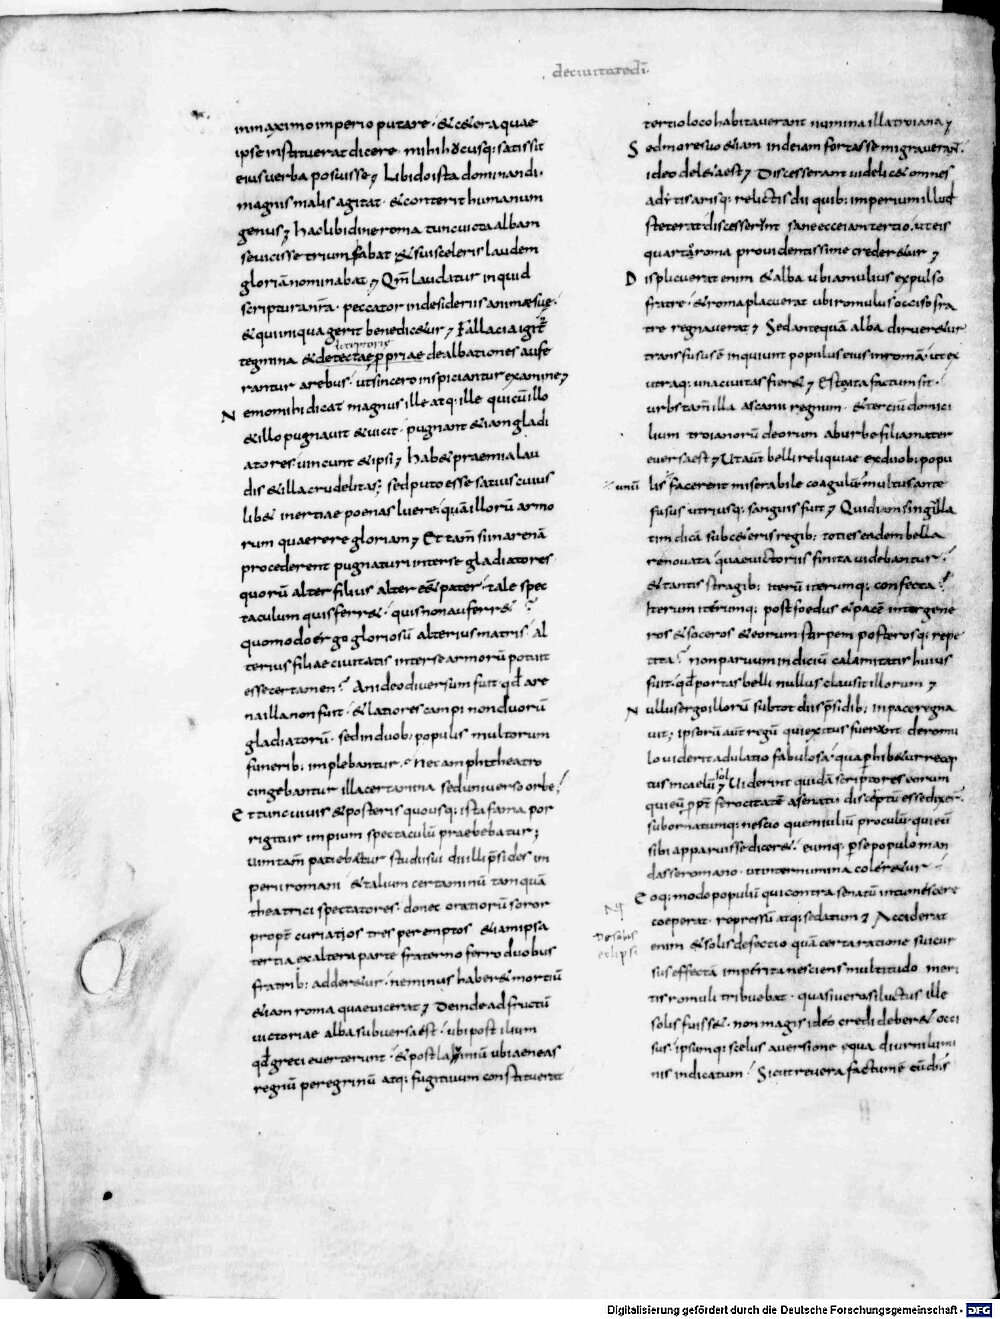 deciuitatedī.
inmaximo imperio putare. & c&era quae
ipse instituerat dicere. mihi hucusq: satis sit
eius uerba posuisse; Libido ista dominandi.
magnis malis agitat. & conterit humanum
genus; hac libidine roma tunc uicta albam
se uicisse triumfabat & sui sceleris laudem
gloriā nominabat; Qm̄ laudatur inquid
scriptura nr̄a. peccator in desideriis animae suę.
& qui iniqua gerit benedic&ur; Fallacia igit̄
tegmina & deceptoriae dealbationes aufe
rantur a rebus. ut sincero inspiciantur examine;
Nemo mihi dicat magnus ille atq: ille quicū illo
& illo pugnauit & uicit. pugnant & iam gladi
atores. uincunt & ipsi; hab& praemia lau
dis & illa crudelitas; sed puto esse satius cuius
lib& inertiae poenas luere. quā illorū armo
rum quaerere gloriam; Et tam̄ si in arenā
procederent pugnaturi inter se gladiatores
quorū alter filius alter eēt pater. tale spec
taculum quis ferr&. quis non auferr&?
quomodo ergo gloriosū alterius matris. al
terius filiae ciuitatis inter se armorū potuit
esse certamen? An ideo diuersum fuit. qd̄ are
na illa non fuit. & latiores campi non duorū
gladiatorū. sed in duob: populis multorum
funerib: implebantur. Nec amphitheatro
cingebantur illa certamina sed uniuerso orbe.
Et tunc uiuis & posteris quousq: ista fama por
rigitur impium spectaculū praebebatur;
uim tam̄ patiebatur studii sui dii illi p̄sides im
perii romani & talium certaminū tamquā
theatrici spectatores. donec oratiorū soror
propt̄ curiatios tres peremptos & iam ipsa
tertia ex altera parte fraterno ferro duobus
fratrib: adder&ur. ne minus haber& mortiū
& iam roma quae uicerat; Deinde ad fructū
uictoriae alba subuersa est. ubi post ilium
qd̄ greci euerterunt. & post lauiniū ubi aeneas
regnū peregrinū atq: fugitiuum constituerat
tertio loco habitauerant numina illa troiana;
Sed more suo & iam inde iam fortasse migrauerant.
ideo del&a est; Discesserant uidelic& omnes
adytis arisq: relictis dii quib: imperium illud
steterat discesserunt sane ecce iam tertio. ut eis
quarta roma prouidentissime creder&ur;
Displicuerat enim & alba ubi amulius expulso
fratre. & roma placuerat ubi romulus occiso fra
tre regnauerat; Sed antequā alba dirueretur
transfusus ē inquiunt populus eius in romā. ut ex
utraq: una ciuitas fier&; Esto ita factum sit.
urbs tam̄ illa ascanii regnum. & terciū domici
lium troianorū deorum ab urbe filia mater
euersa est; Ut aut̄ belli reliquiae ex duob: popu
unū
lis facerent miserabile coagulū multus ante
fusus utriusq: sanguis fuit; Quid iam singilla
tim dicā sub c&eris regib: toties eadem bella
renouata quae uictoriis finita uidebantur.
& tantis stragib: iterū iterumq: confecta?
Iterum iterumq: post foedus & pacē inter gene
ros & soceros & eorum stirpem posterosq: repe
tita? non paruum indiciū calamitatis huius
fuit. qd̄ portas belli nullus clausit illorum;
Nullus ergo illorū sub tot diis p̄sidib: in pace regna
uit; ipsorū aut̄ regū qui exitus fuerunt. de romu
lo uiderit adulatio fabulosa. qua ꝑhib&ur recep
tus in caelū; Uiderint quidā scriptores eorum
qui eū ꝓpt̄ ferocitatē a senatu discerptū esse dixer̄.
subornatumq: nescio quem iuliū proculū qui eū
sibi apparuisse dicer&. eumq: ꝑ se populo man
dasse romano. ut inter numina coler&ur
Eoq: modo populū qui contra senatū intumescere
coeperat. repressū atq: sedatum; Acciderat
de solis
eclipsi
enim & solis defectio quā certa ratione sui cur
sus effectā imperita nesciens multitudo meri
tis romuli tribuebat. quasi uero si luctus ille
solis fuiss&. non magis ideo credi deber& occi
sus. ipsumq: scelus auersione & qua diurni lumi
nis indicatum. Sicut reuera factum ē cū dn̄s
Digitalisierung gefördert durch die Deutsche Forschungsgemeinschaft - DFG